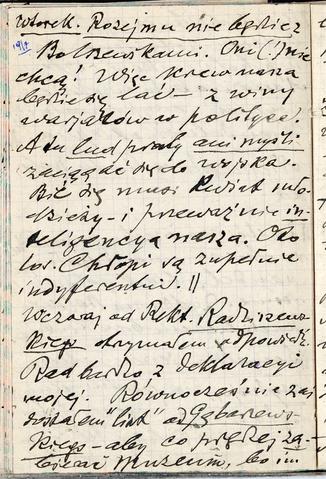 wtorek. Rozejmu nie będzie z
14/7 Bolszewikami. Oni (!) nie
chcą! Więc krew nasza
będzie się lać – z winy
warjatów w polityce!
A tu lud prosty ani myśli
zaciągać się do wojska.
Bić się musi kwiat mło-
dzieży – i przeważnie in-
teligencya nasza. Oto
los. Chłopi są zupełnie
indyferentni. ||
Wczoraj od Rekt. Radziszew-
skiego otrzymałem odpowiedź.
Rad bardzo z deklaracyi
mojej. Równocześnie zaś
dostałem "list" od Gębarzews-
kiego – aby co prędzej za-
bierać Muzeum, bo im